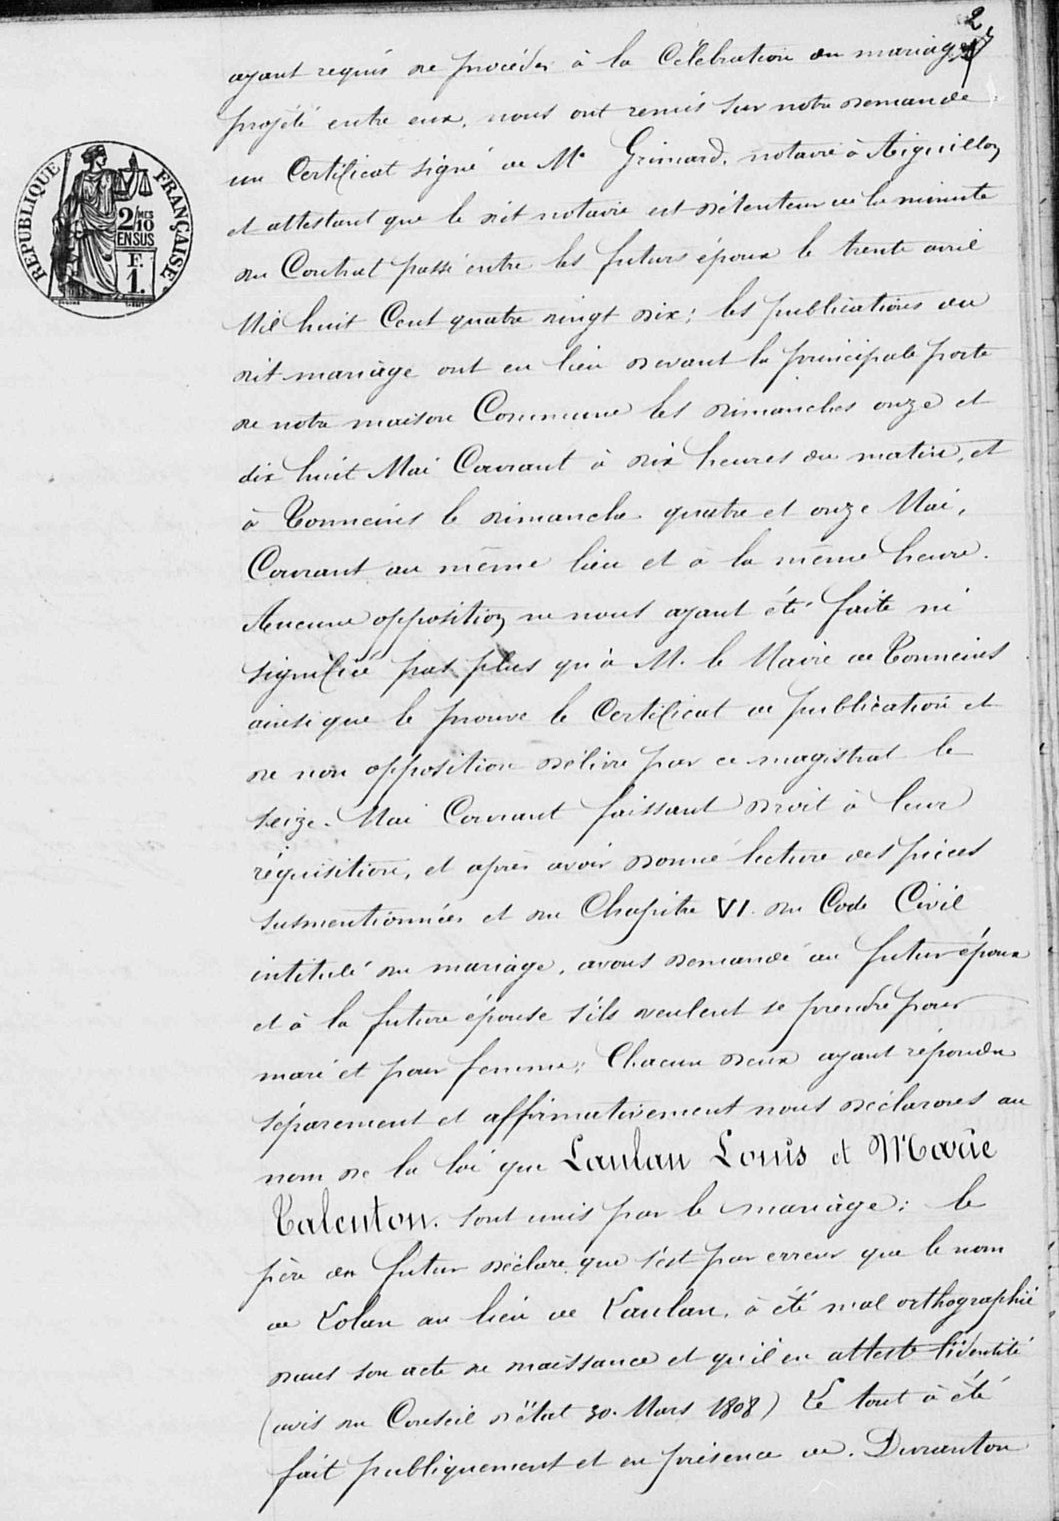 2
ayant requis de procéder à la Célébration du mariage
projeté entre eux, nous ont remis sur notre demande
un Certificat signé de Me Grimard, notaire à Aiguillon
et attestant que le dit notaire est détenteur de la minute
du Contrat passé entre les futurs époux le trente avril
Mil huit Cent quatre vingt dix ; les publications du
dit mariage ont eu lieu devant la principale porte
de notre maison Commune les dimanches onze et
dix huit Mai Courant à dix heures du matin, et
à Tonneins le dimanche quatre et onze Mai,
Courant au même lieu et à la même heure.
Aucune opposition ne nous ayant été faite ni
signifiée pas plus qu'à M. le Maire de Tonneins
ainsi que le prouve le Certificat de publication et
de non opposition délivré par ce magistrat le
seize Mai Courant faissant droit à leur
réquisition, et après avoir donné lecture des pièces
susmentionnées et du Chapitre VI. du Code Civil
intitulé du mariage, avons demandé au futur époux
et à la future épouse s'ils veulent se prendre pour
mari et pour femme ; Chacun deux ayant répondu
séparement et affirmativement nous déclarons au
nom de la loi que Laulan Louis et Marie
Talenton. sont unis par le mariage : le
père du futur déclare que s'est par erreur que le nom
de Lolan au lieu de Laulan, à été mal orthographié
dans son acte de naissance et qu'il en atteste l'identité
(avis du Conseil d'état 30. Mars 1808) Le tout à été
fait publiquement et en présence de. Duranton
RÉPUBLIQUE FRANÇAISE.
2/10 MES
EN SUS
F.
1.